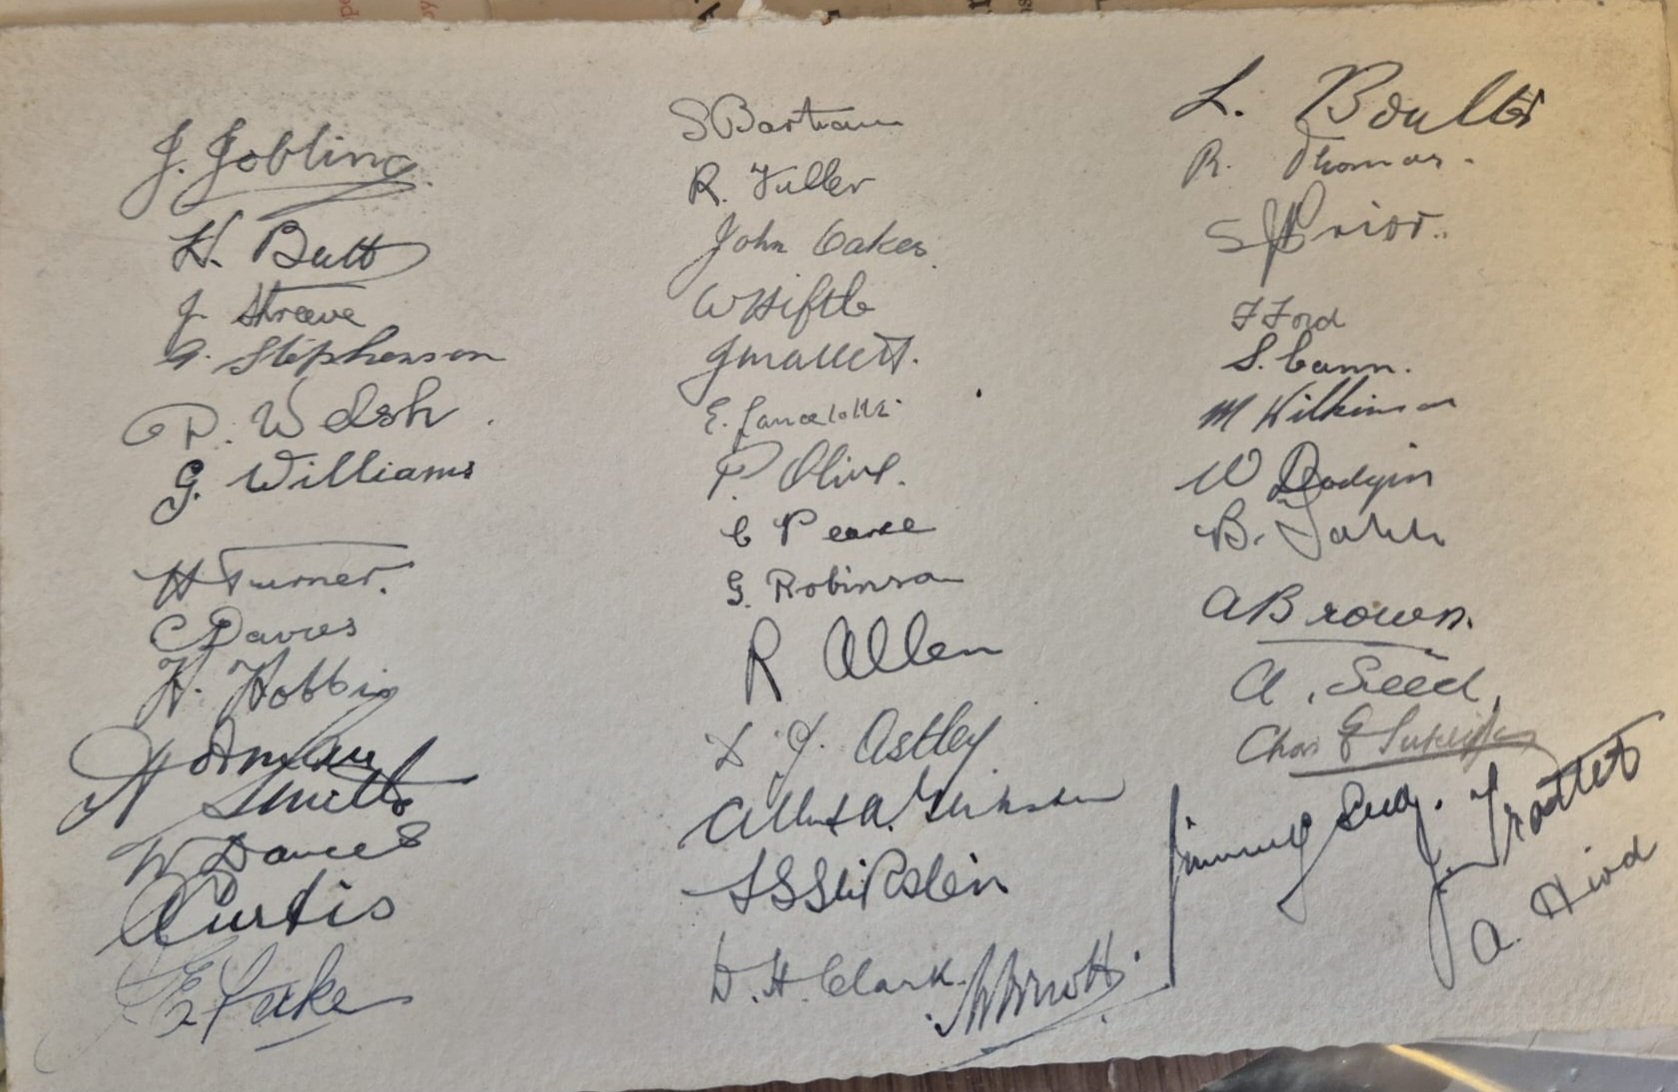 J. Jobling
H. Butt
J Shreeve
A. Stephenson
D. Welsh
G. Williams
H Turner.
C Davies
H. Hobbis
Norman
Smith
W Davies
A Curtis
S Bartram
R. Fuller
John Oakes
W Hiftle
J Mallett.
E. Lancelotte
P. Olive.
C Pearce
G. Robinson
R Allen
D. J. Astley
Albert A.
D. H. Clark.
L. Boulter
R. Thomas.
S J Prior..
F Ford
S. Cann.
M Wilkinson
W Dodgin
B.
A Brown.
A. Seed
Chas E
Jimmy Seed.
J. Trotter
A. Hird